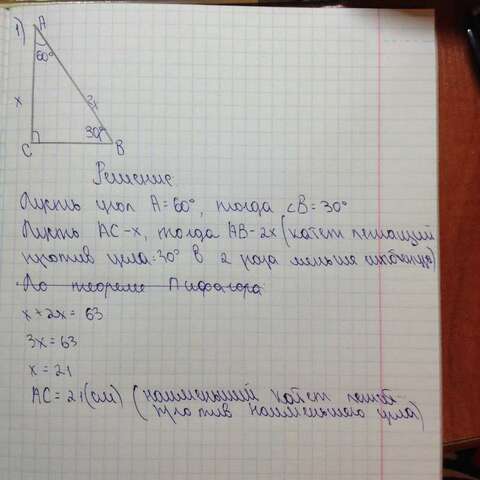 1)
A
60°
x
2x
30°
C
B
Решение
Пусть угол A=60°, тогда ∠B=30°
Пусть AC-x, тогда AB-2x (катет лежащий
против угла 30° в 2 раза меньше гипотенузы)
По теореме Пифагора
x+2x=63
3x=63
x=21
AC=21(см) (наименьший катет лежит
против наименьшего угла)